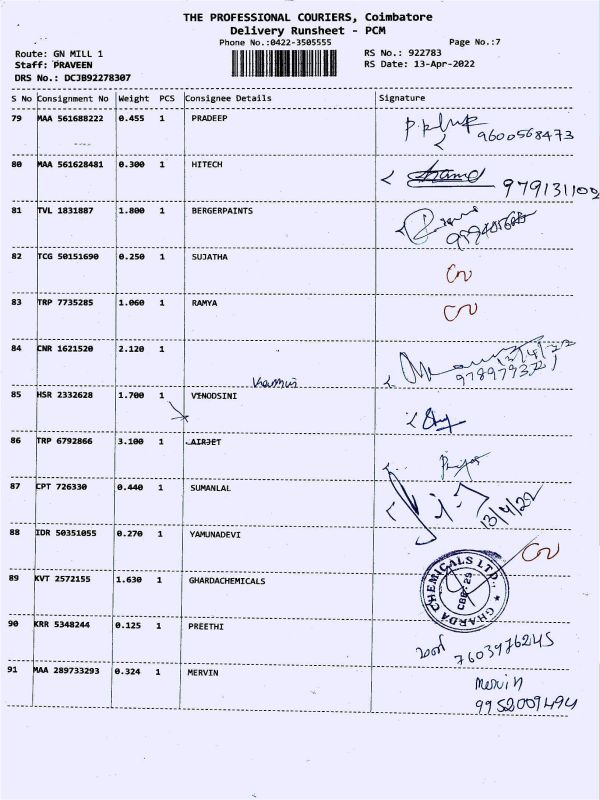 THE PROFESSIONAL COURIERS, Coimbatore
Delivery Runsheet - PCM
Phone No.:0422-3505555 Page No.:7
Route: GN MILL 1 RS No.: 922783
Staff: PRAVEEN RS Date: 13-Apr-2022
DRS No.: DCJB92278307
S No Consignment No Weight PCS Consignee Details Signature
79 MAA 561688222 0.455 1 PRADEEP
9600568473
80 MAA 561628481 0.300 1 HITECH
979131100
81 TVL 1831887 1.800 1 BERGERPAINTS
82 TCG 50151690 0.250 1 SUJATHA
83 TRP 7735285 1.060 1 RAMYA
84 CNR 1621520 2.120 1
13/4/22
85 HSR 2332628 1.700 1 VENODSINI
86 TRP 6792866 3.100 1 AIRJET
87 CPT 726330 0.440 1 SUMANLAL
13/4/22
88 IDR 50351055 0.270 1 YAMUNADEVI
89 KVT 2572155 1.630 1 GHARDACHEMICALS
GHARDA CHEMICALS LTD.
90 KRR 5348244 0.125 1 PREETHI
7603976245
91 MAA 289733293 0.324 1 MERVIN
Mervin
9952009494